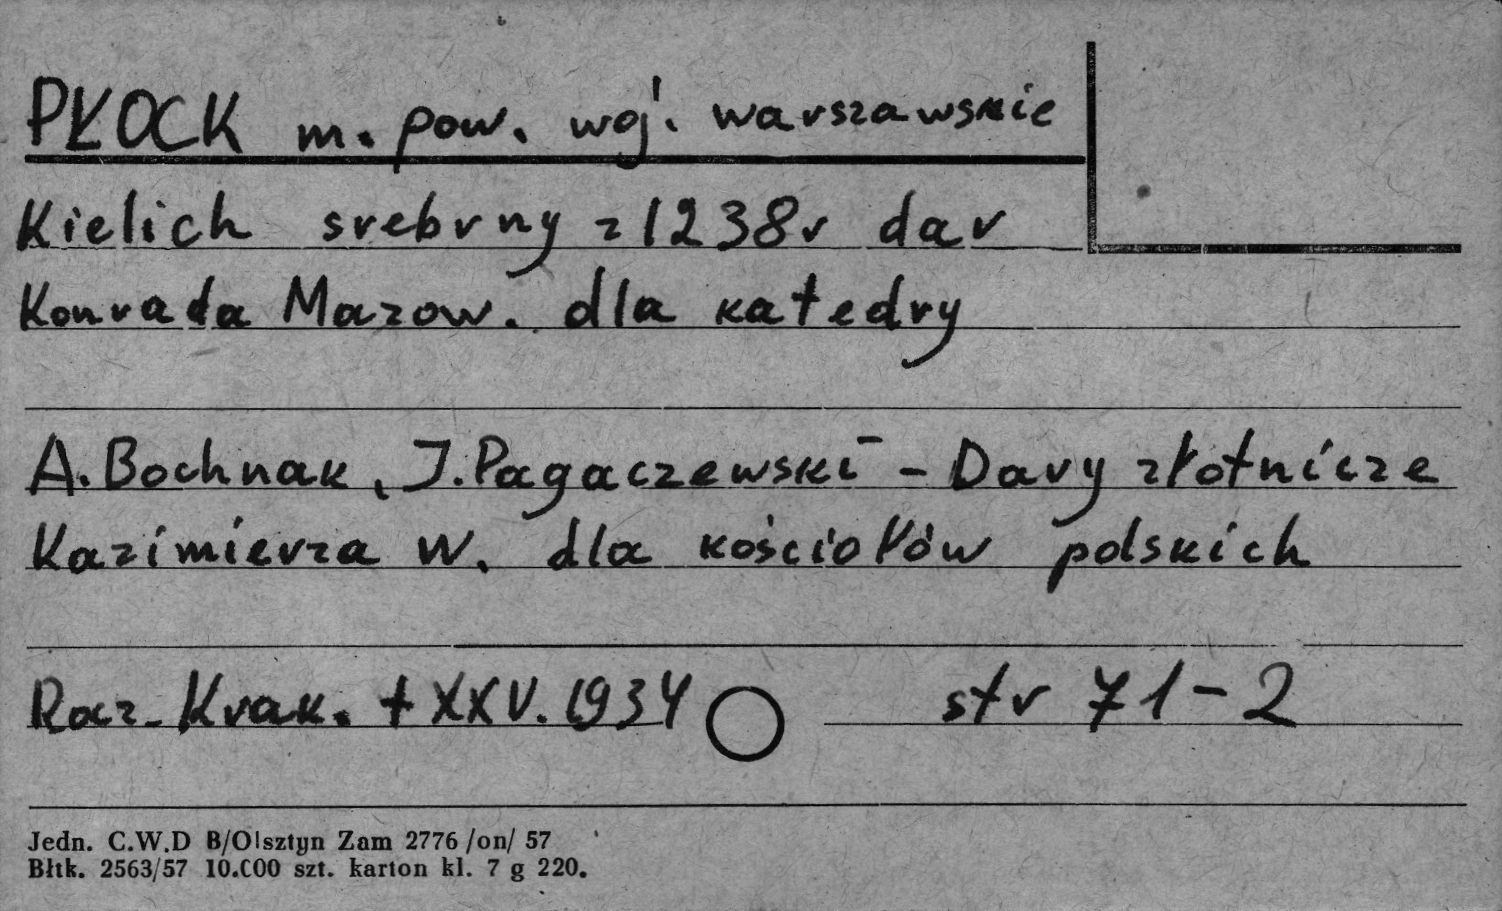 PŁOCK m. pow. woj. warszawskie
Kielich srebrny z 1238r dar
Konrada Mazow. dla katedry
A. Bochnak, J. Pagaczewski - Dary złotnicze
Kazimierza W. dla kościołów polskich
Rocz. Krak. t XXV. 1934 str 71-2
Jedn. C.W.D B/Olsztyn Zam 2776 /on/ 57
Błtk. 2563/57 10.000 szt. karton kl. 7 g 220.